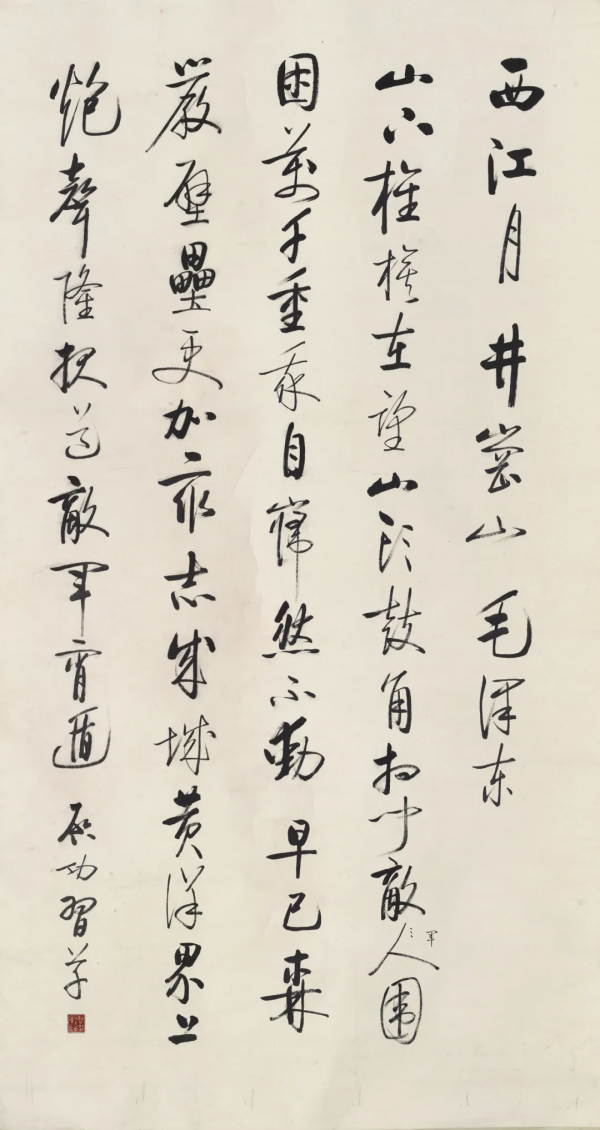 西江月 井崗山 毛泽东
山下旌旗在望山头鼓角相闻敵人军围
困萬千重我自巋然不動 早已森
嚴壁壘更加衆志成城黄洋界上
炮聲隆报道敵军宵遁 启功習草